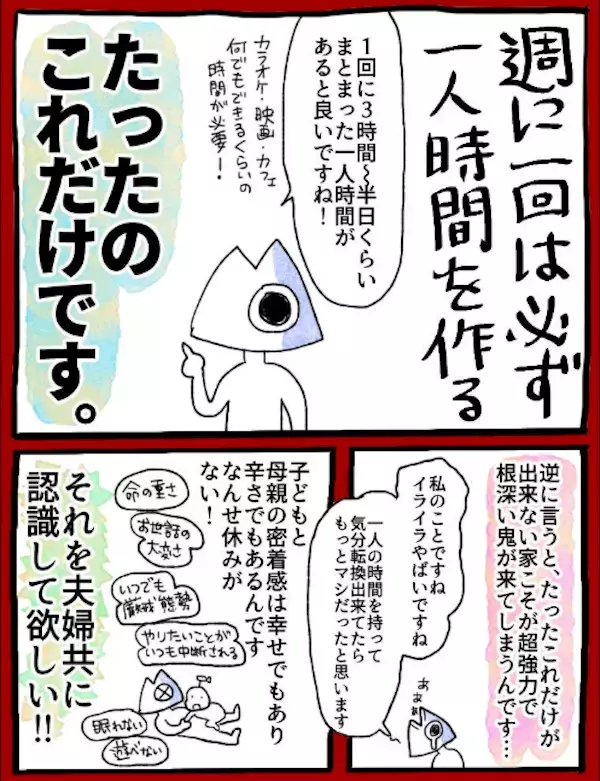 週に一回は必ず
一人時間を作る
1回に3時間〜半日くらい
まとまった一人時間が
あると良いですね!
カラオケ・映画・カフェ
何でもできるくらいの
時間が必要ー!
たったの
これだけです。
逆に言うと、たったこれだけが
出来ない家こそが超強力で
根深い鬼が来てしまうんです…
私のことですね
イライラやばいですね
一人の時間を持って
気分転換出来てたら
もっとマシだったと思います
あぁぁ
子どもと
母親の密着感は幸せでもあり
辛さでもあるんです
なんせ休みが
ない!
命の重さ
お世話の
大変さ
いつでも
厳戒態勢
やりたいことが
いつも中断される
眠れない
遊べない
それを夫婦共に
認識して欲しい!!